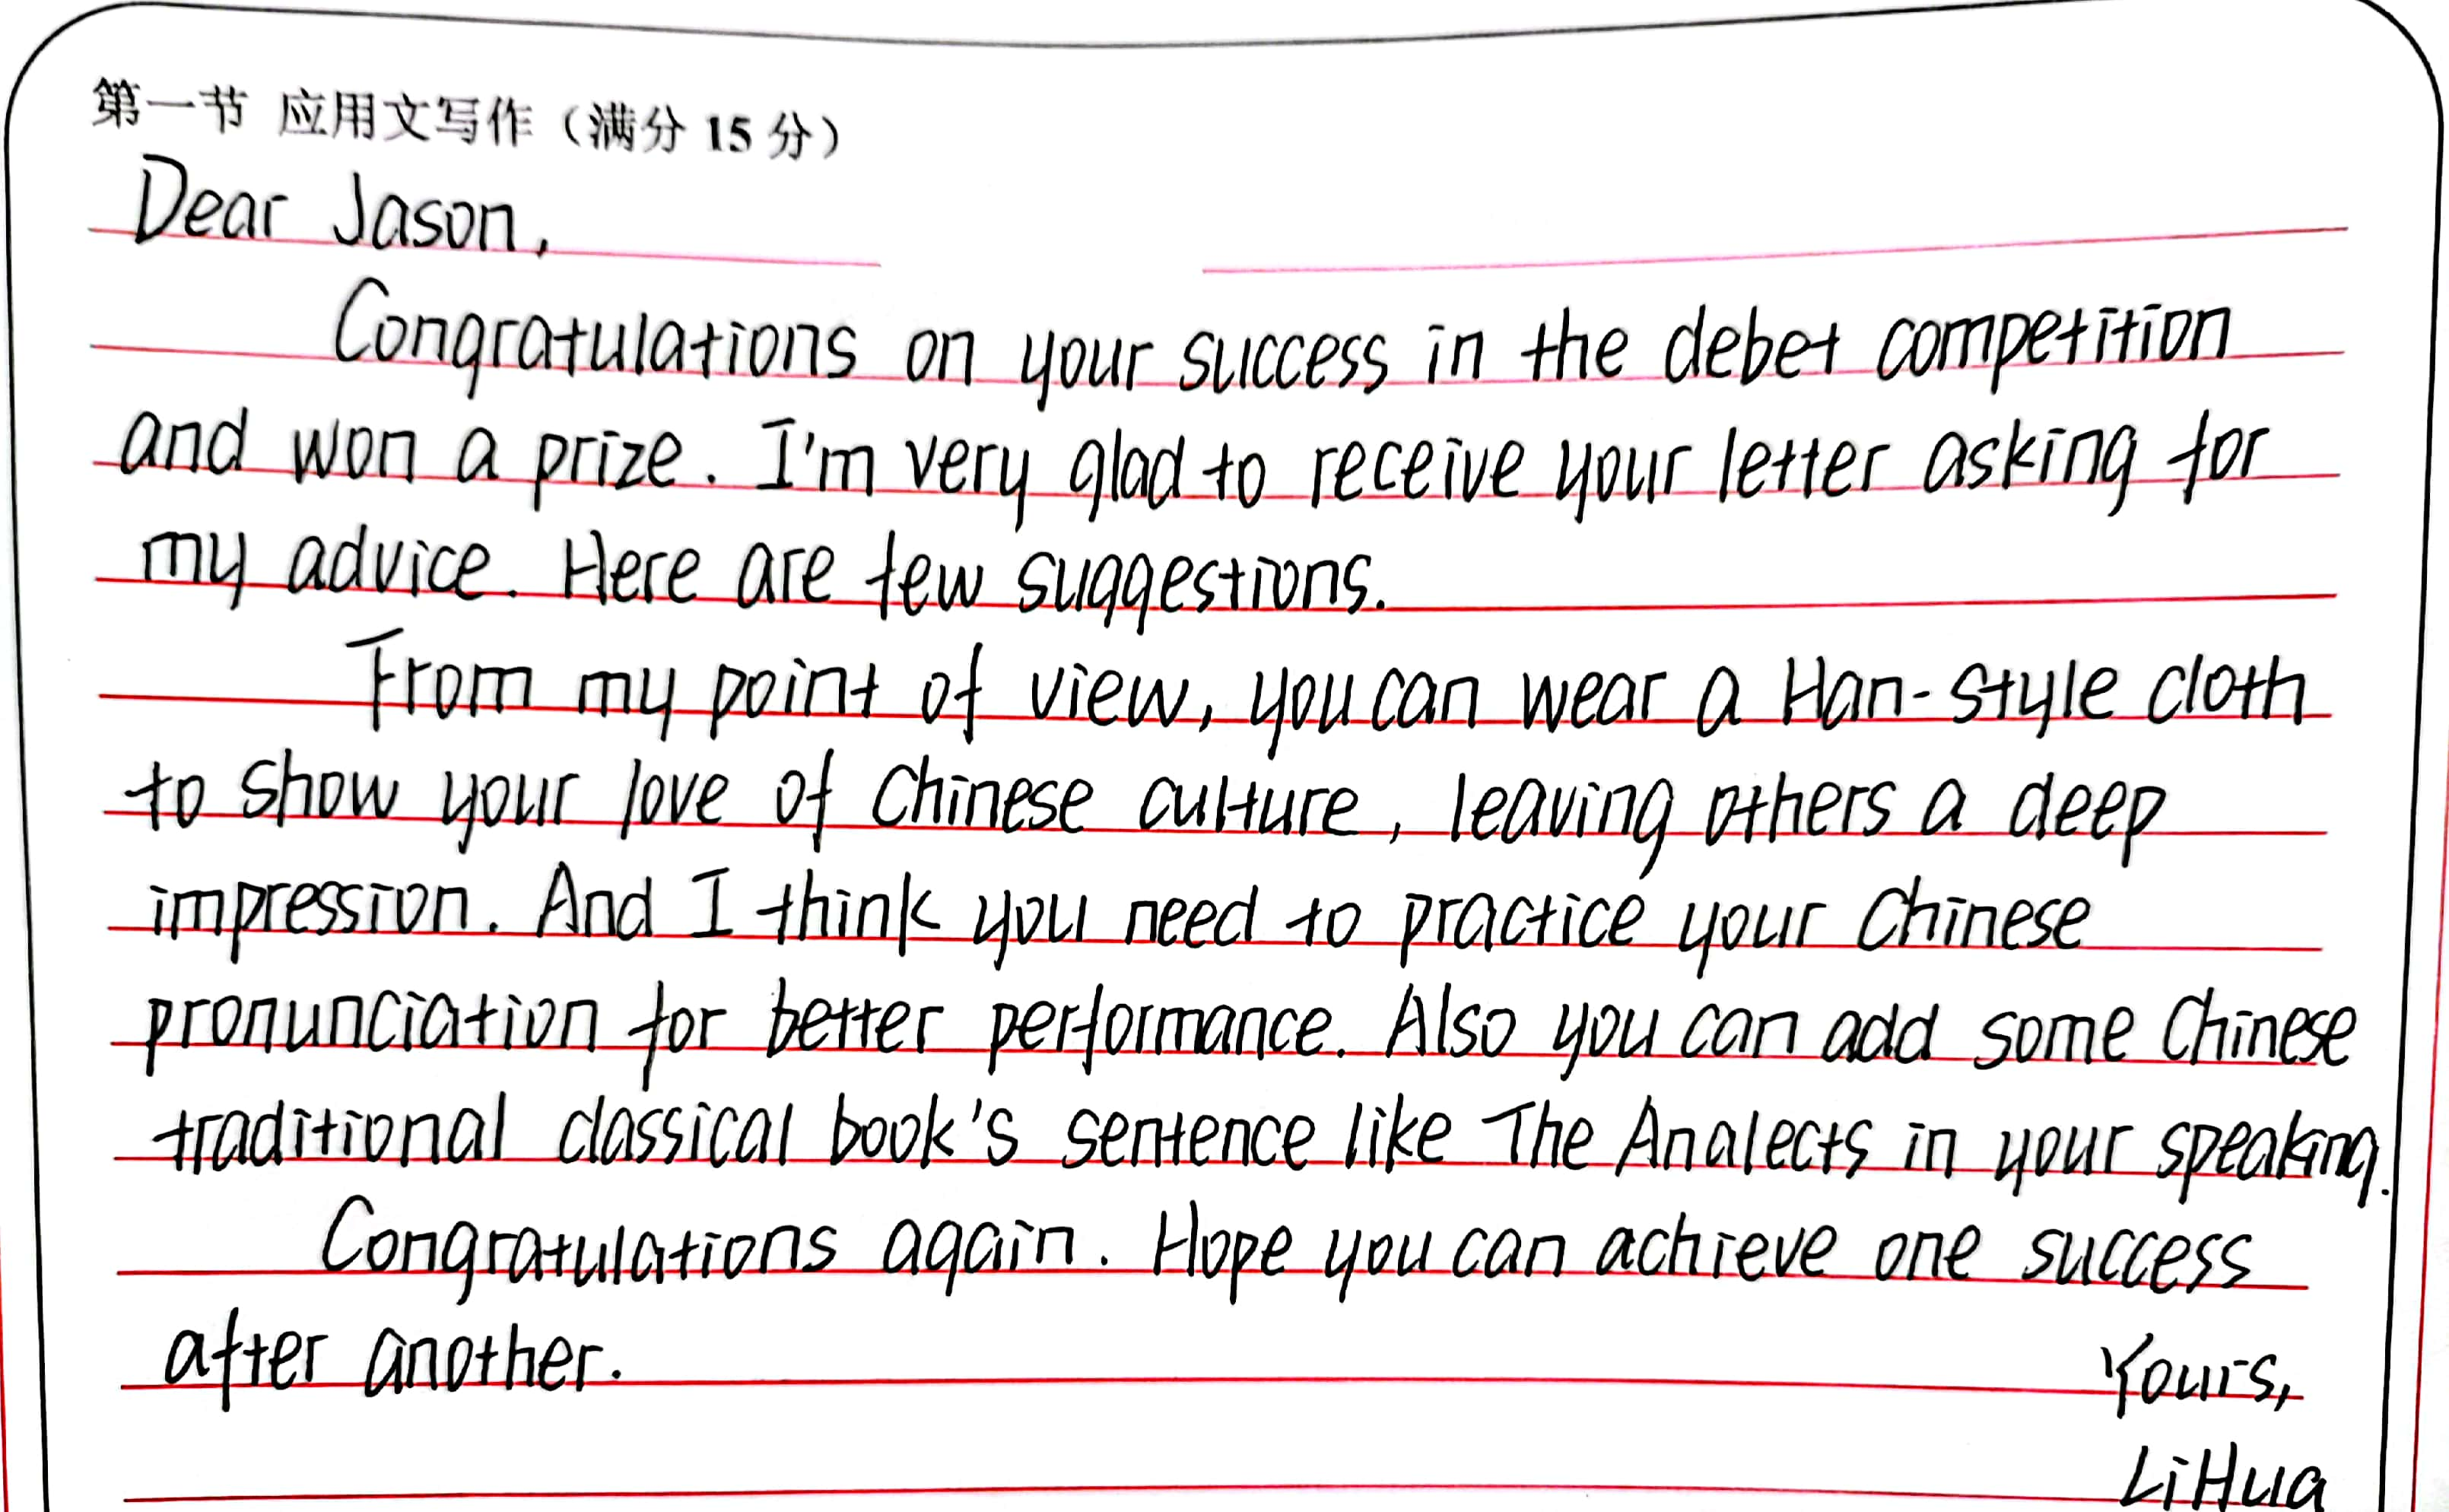 第一节 应用文写作（满分 15 分）
Dear Jason,
Congratulations on your success in the debet competition
and won a prize. I'm very glad to receive your letter asking for
my advice. Here are few suggestions.
From my point of view, you can wear a Han-style cloth
to show your love of Chinese culture, leaving others a deep
impression. And I think you need to practice your Chinese
pronunciation for better performance. Also you can add some Chinese
traditional classical book's sentence like The Analects in your speaking.
Congratulations again. Hope you can achieve one success
after another.
Yours,
LiHua